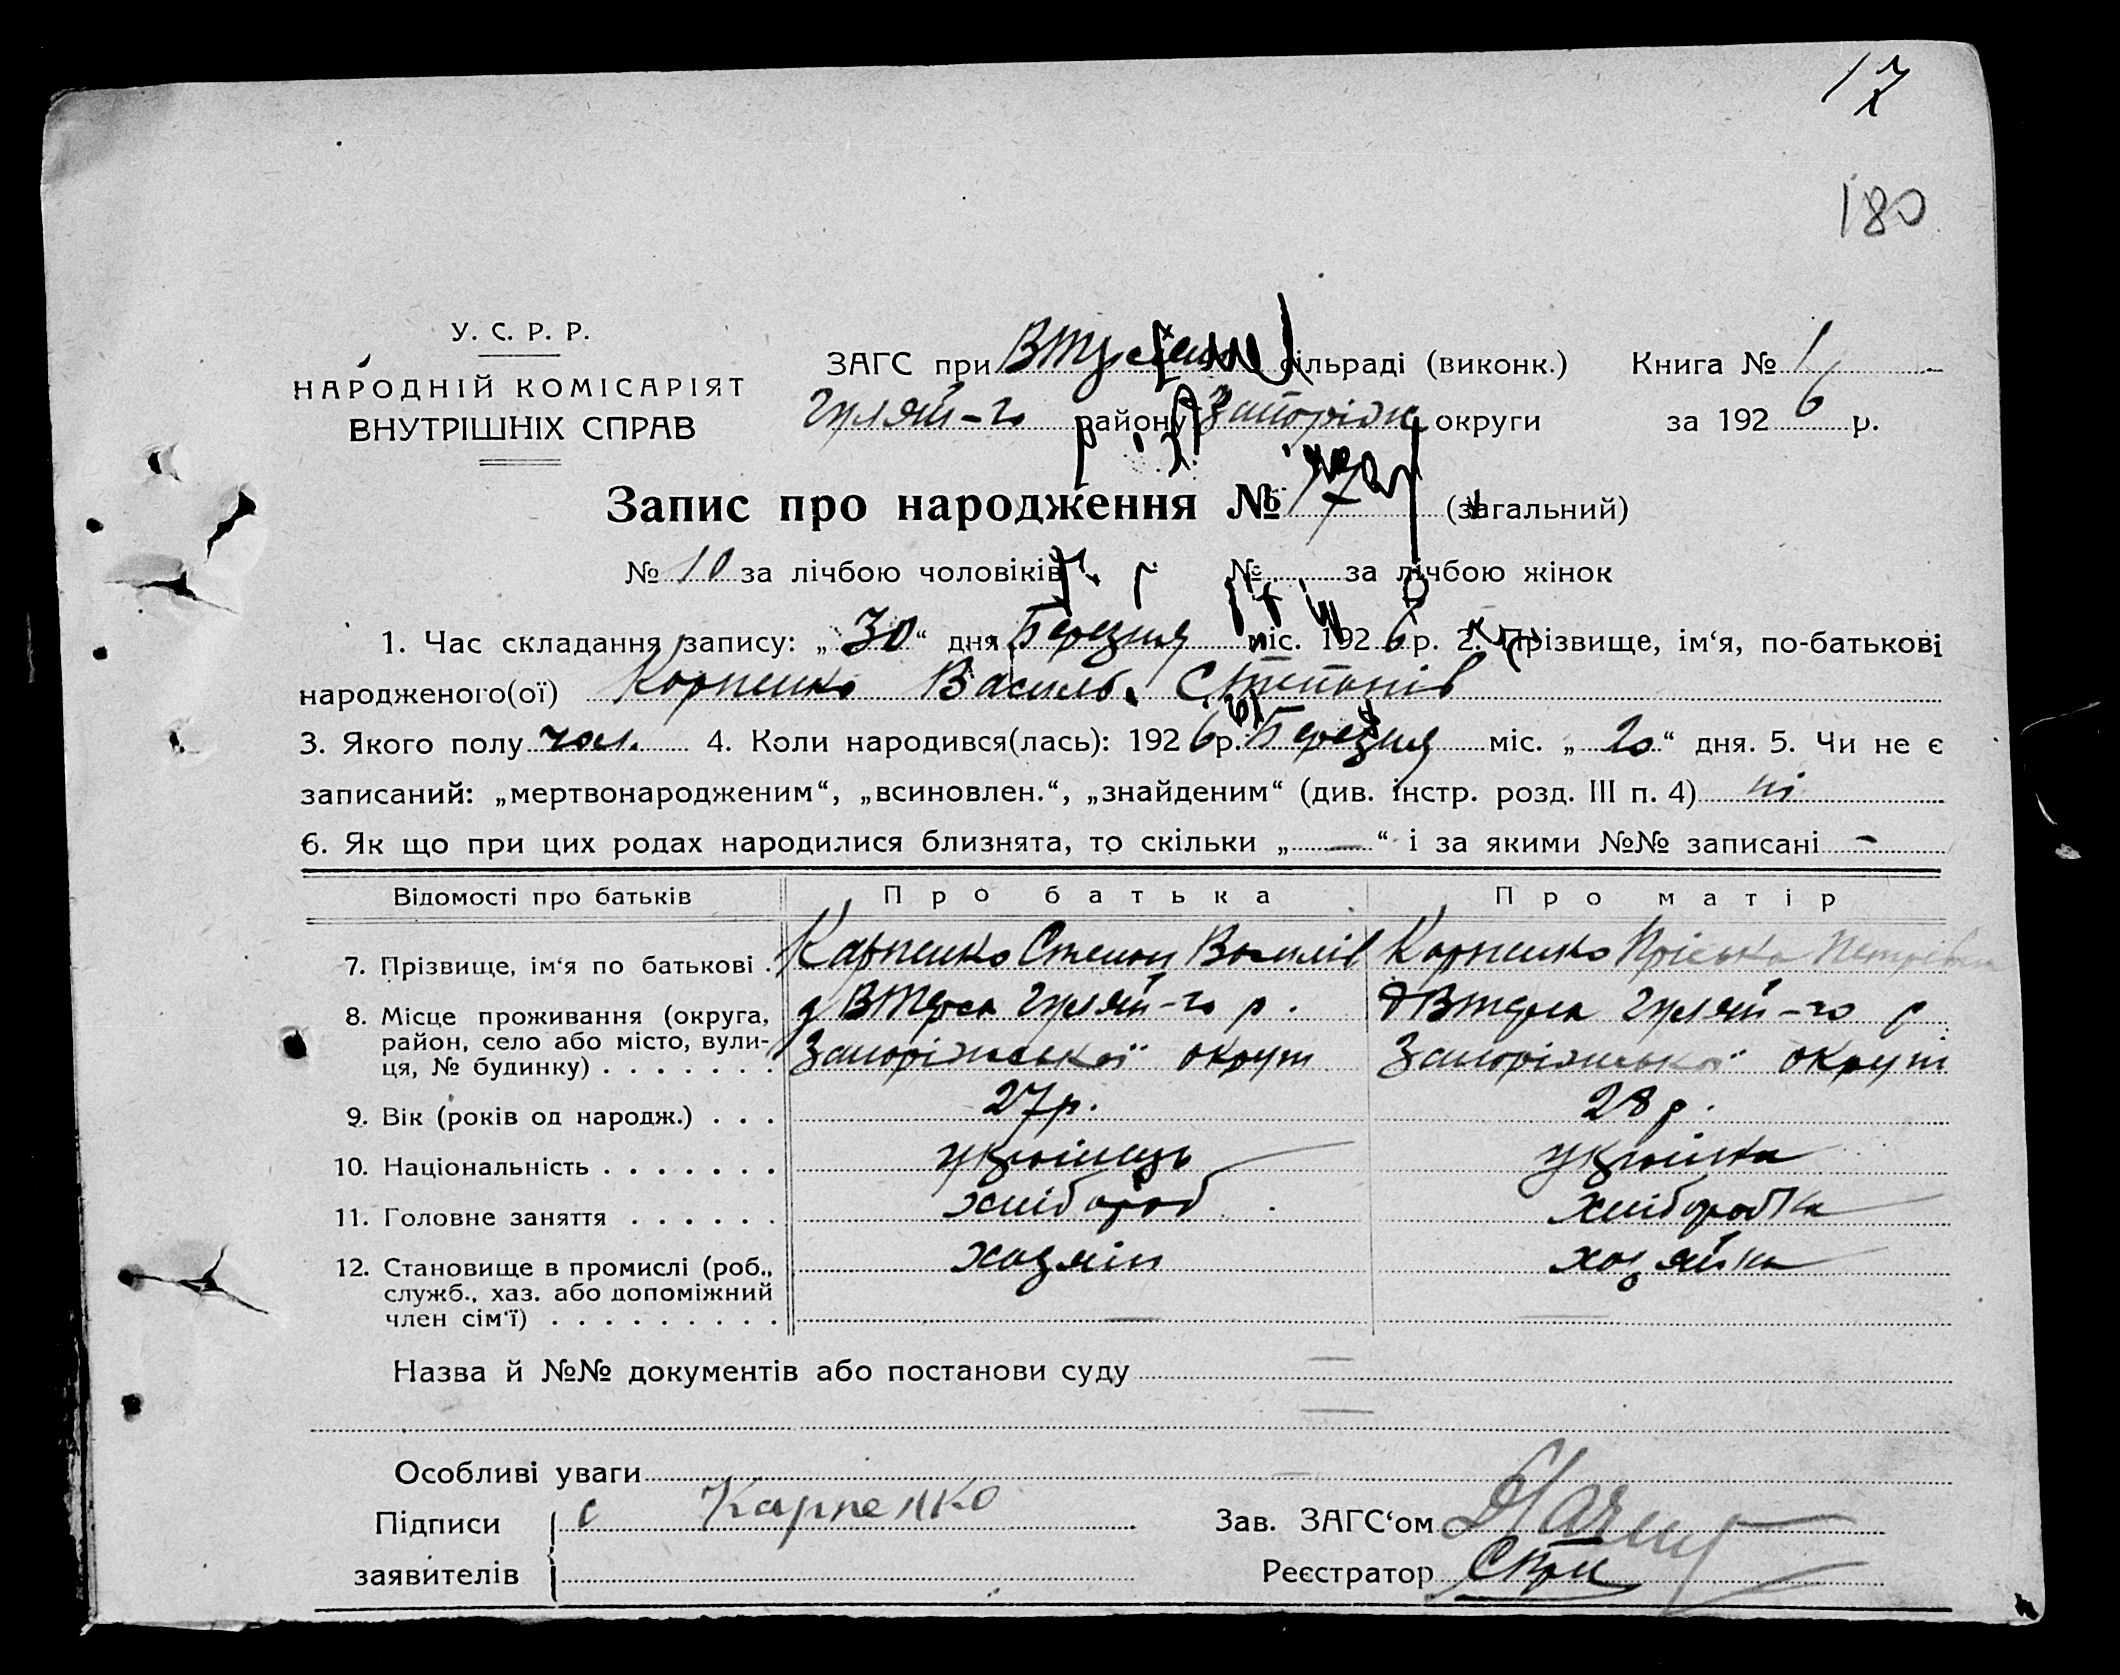 17
180
У. С. Р. Р.
НАРОДНІЙ КОМІСАРІЯТ
ВНУТРІШНІХ СПРАВ
ЗАГС при сільраді (виконк.) Книга № 1
Гуляй-го району Запоріж округи за 1926 р.
Запис про народження № 17 (загальний)
№ 10 за лічбою чоловіків № за лічбою жінок
1. Час складання запису: „30“ дня Березня міс. 1926 р. 2. Прізвище, ім‘я, по-батькові
народженого(ої) Карпенко Василь Степанів
3. Якого полу чол. 4. Коли народився(лась): 1926 р. Березня міс. „20“ дня. 5. Чи не є
записаний: „мертвонародженим“, „всиновлен.“, „знайденим“ (див. інстр. розд. III п. 4) ні
6. Як що при цих родах народилися близнята, то скільки „—“ і за якими №№ записані -
Відомості про батьків Про батька Про матір
7. Прізвище, ім‘я по батькові . Карпенко Степан Василів Карпенко Пріська Петрівна
8. Місце проживання (округа, Гуляй-го р. Гуляй-го р
район, село або місто, вули- Запоріжської округи Запоріжської округи
ця, № будинку) . . . . . . .
9. Вік (років од народж.) . . . 27 р. 28 р.
10. Національність . . . . . . . українець українка
11. Головне заняття . . . . . . хлібороб хліборобка
12. Становище в промислі (роб., хозяін хозяйка
служб., хаз. або допоміжний
член сім‘ї) . . . . . . . . . — —
Назва й №№ документів або постанови суду —
—
Особливі уваги —
Підписи с Карпенко Зав. ЗАГС‘ом
заявителів Реєстратор